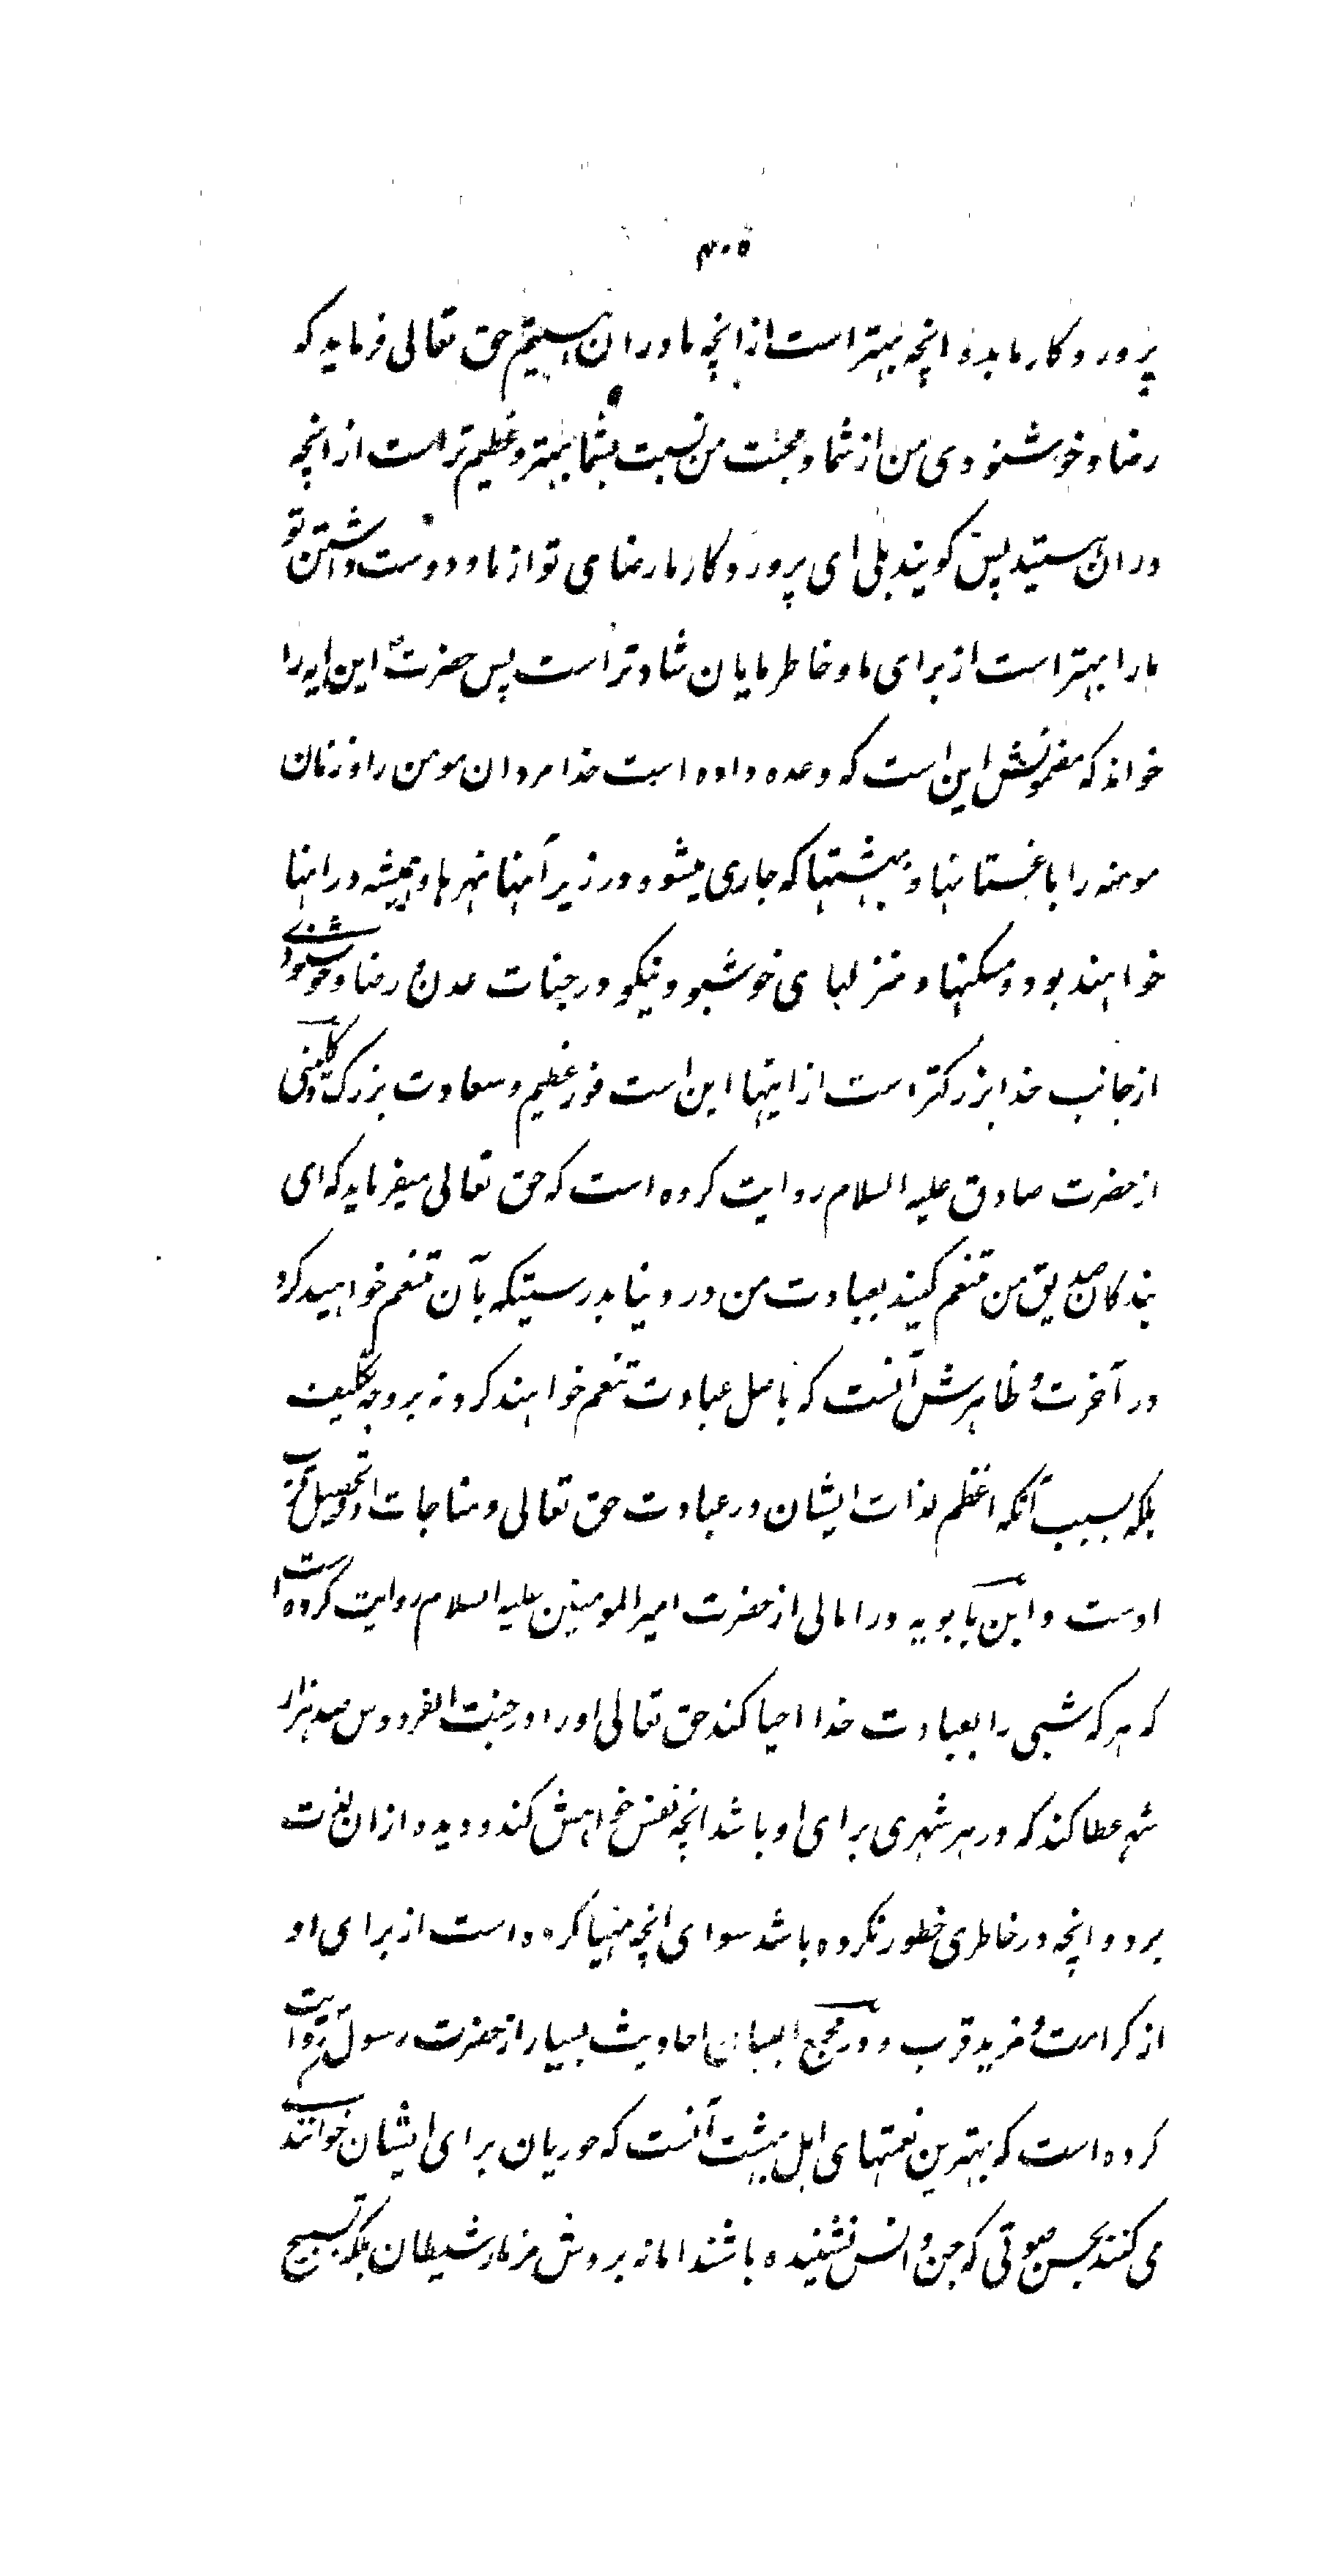 ۴۰۵
پروردکار ما بده انچه بهتر است از انچه ما در ان هستیم حق تعالی فرماید که
رضا و خوشنودی من از شما و محبت من نسبت بشما بهتر و عظیم تر است از انچه
در ان هستید پس کویند بلی ای پروردکار ما رضای تو از ما و دوست داشتن تو
ما را بهتر است از برای ما و خاطر مایان شادتر است پس حضرت این ایه را
خواند که مضمونش این است که وعده داده است خدا مردان مومن را و زنان
مومنه را باغستانها و بهشتها که جاری میشود در زیر آنها نهرها و همیشه در انها
خواهند بود و مسکنها و منزلهای خوشبو و نیکو در جنات عدن و رضا و خوشنودی
از جانب خدا بزرکتر است از اینها این است فوز عظیم و سعادت بزرک و کلینی
از حضرت صادق علیه السلام روایت کرده است که حق تعالی میفرماید که ای
بندکان صدیق من تنعم کنید بعبادت من در دنیا بدرستیکه بآن تنعم خواهید کرد
در آخرت و ظاهرش آنست که باصل عبادت تنعم خواهند کرد نه بر وجه تکلیف
بلکه بسبب آنکه اعظم لذات ایشان در عبادت حق تعالی و مناجات او و تحصیل قرب
اوست و ابن بابویه در امالی از حضرت امیرالمومنین علیه السلام روایت کرده است
که هر که شبی را بعبادت خدا احیا کند حق تعالی او را در جنت الفردوس صد هزار
شهر عطا کند که در هر شهری برای او باشد انچه نفس خواهش کند و دیده از ان لذت
برد و انچه در خاطری خطور نکرده باشد سوای انچه مهیا کرده است از برای او
از کرامت و مزید قرب و در مجمع البیان احادیث بسیار از حضرت رسولؐ روایت
کرده است که بهترین نعمتهای اهل بهشت آنست که حوریان برای ایشان خوانندکی
می کنند بحسن صوتی که جن و انس نشنیده باشند اما نه بروش مزمار شیطان بلکه تسبیح